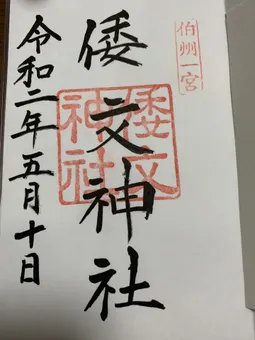 伯州一宮
倭文神社
倭文神社
令和二年五月十日